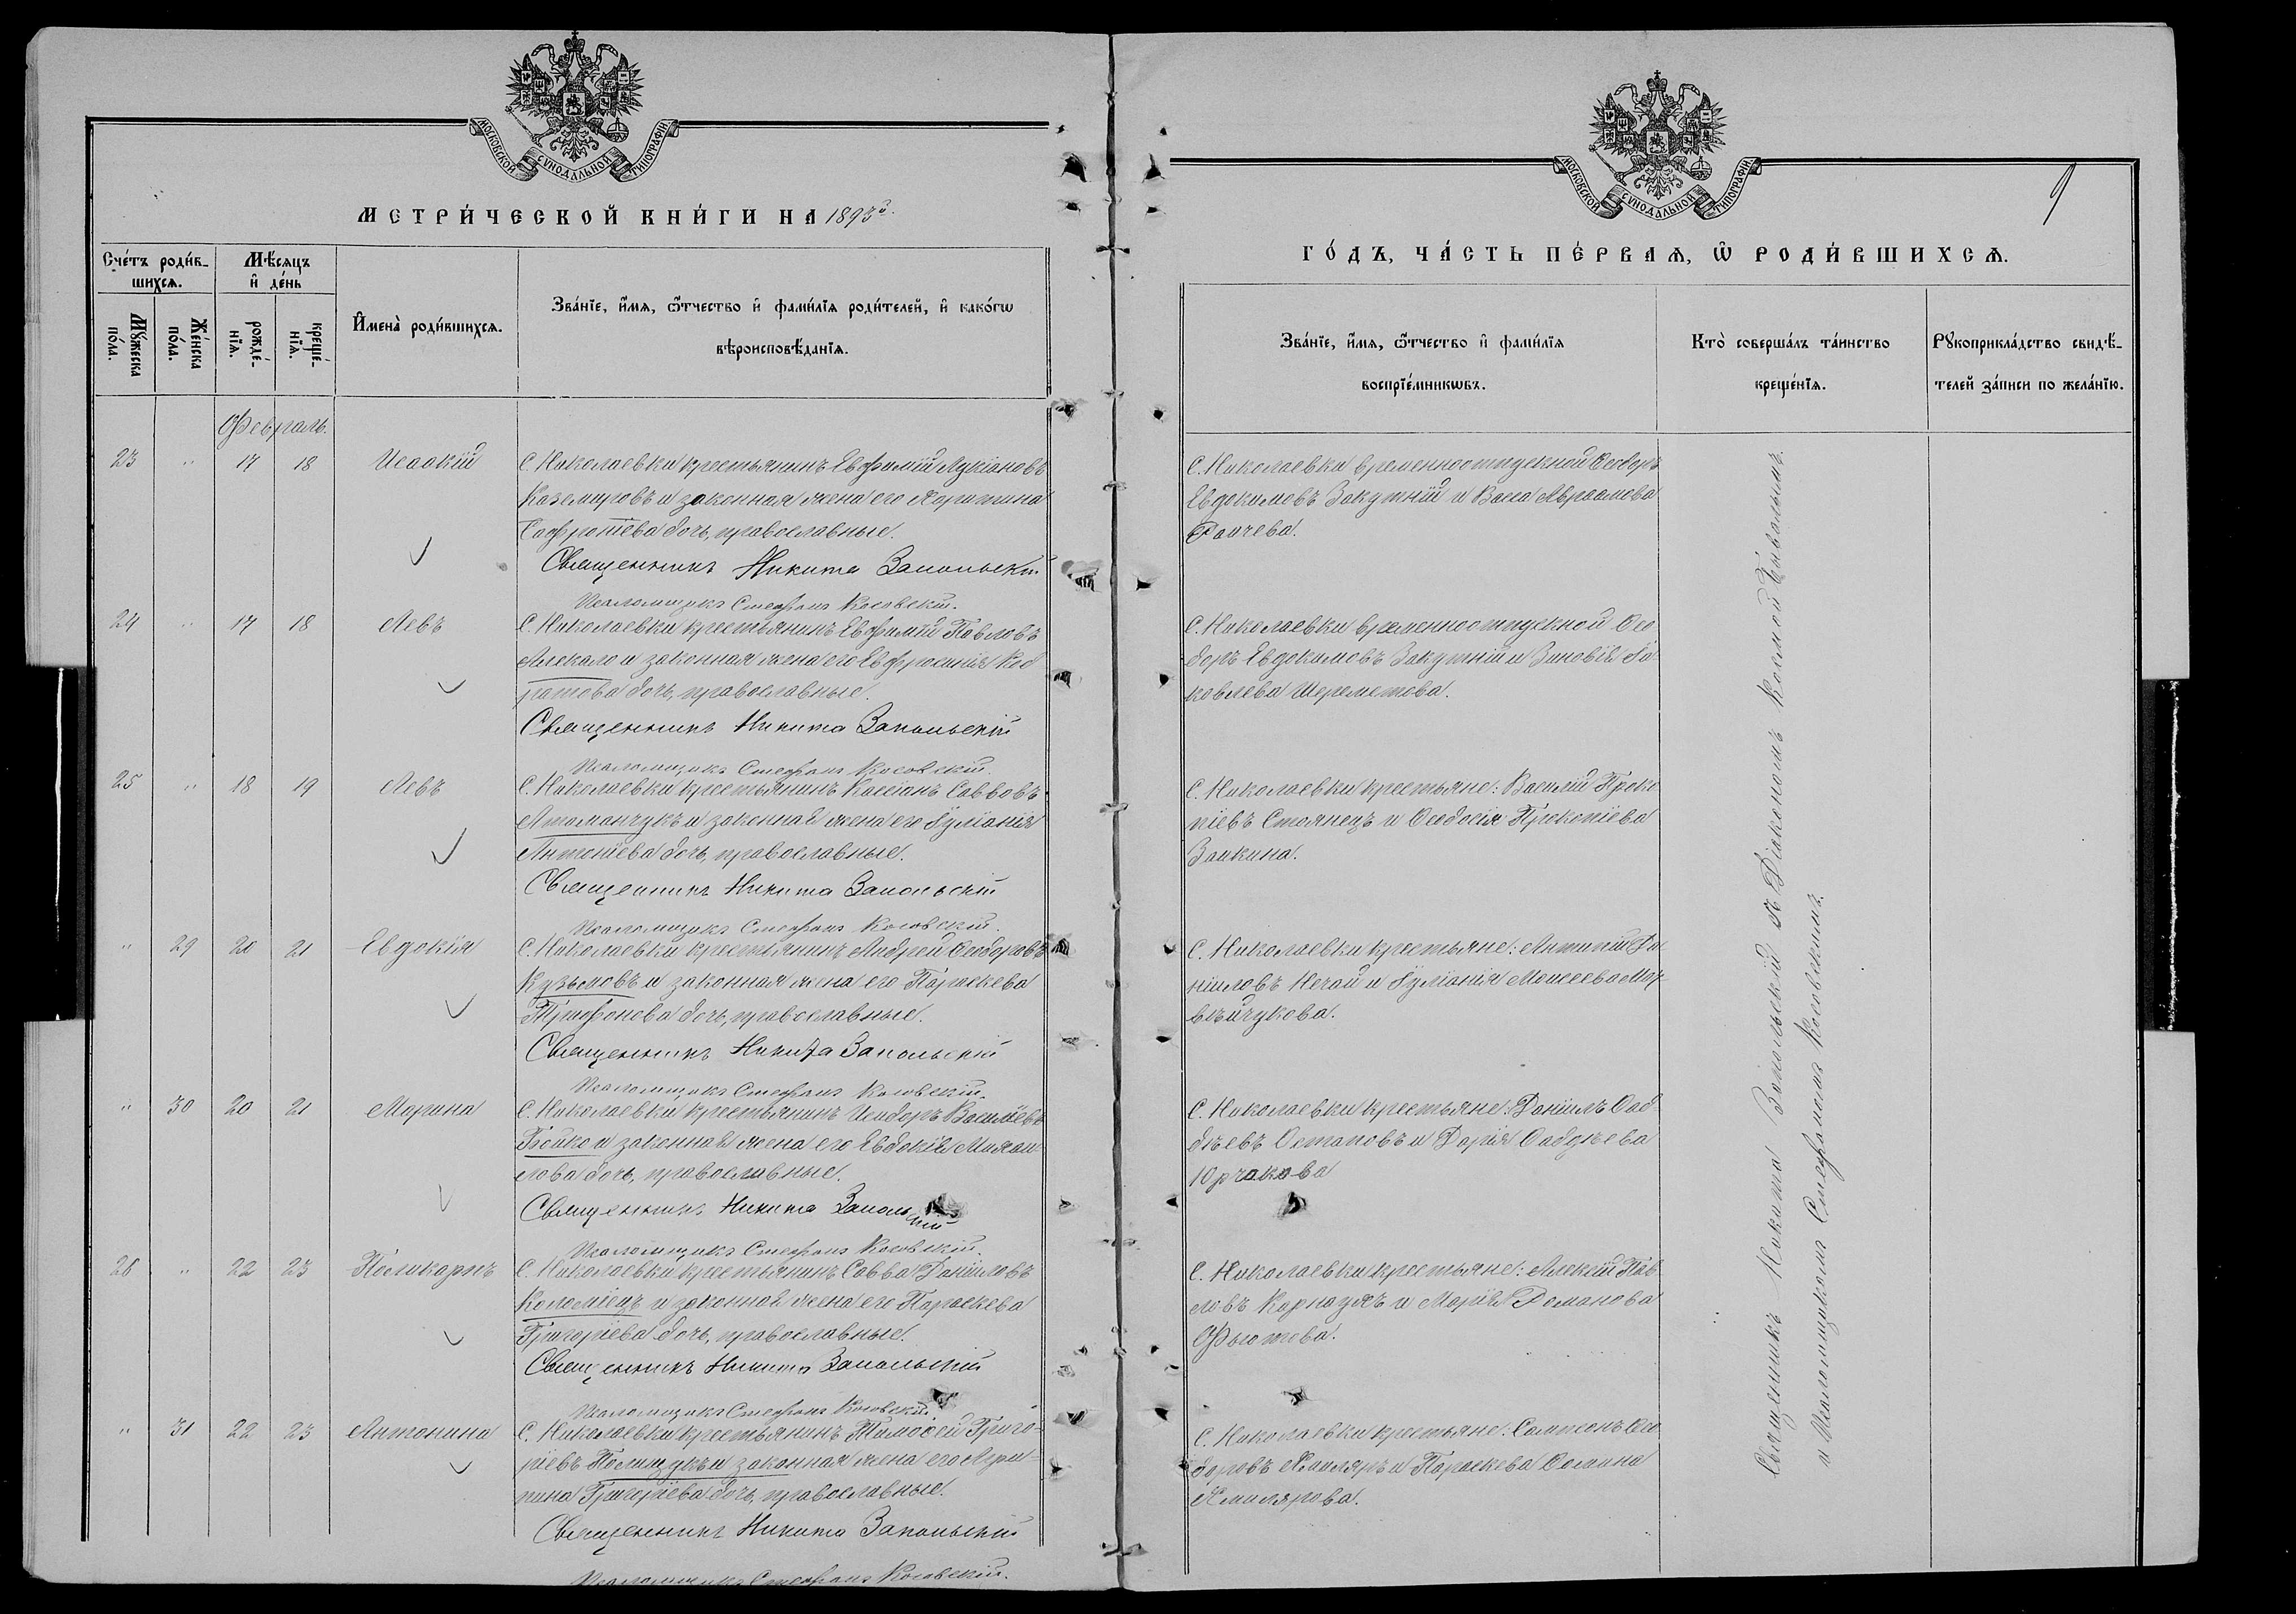 МОСКОВСКОЙ СѴНОДАЛЬНОЙ ТИПОГРАФІИ
МЕТРИ́ЧЕСКОЙ КНИ́ГИ НА 1893й.
Сче́тъ роди́в-
шихсѧ.
Мѣ́сѧцъ
и҆ де́нь
Мꙋ́жеска
по́ла.
Же́нска
по́ла.
рожде́-
нїѧ.
креще́-
нїѧ.
И҆мена̀ роди́вшихсѧ.
Зва́нїе, и҆́мѧ, ѻ҆́тчество и҆ фами́лїѧ роди́телей, и҆ како́гѡ
вѣроисповѣ́данїѧ.
Февраль.
23 " 17 18 Исаакій С. Николаевки крестьянинъ Евфимій Лукіановъ
и законная жена его Харитина
дочь, православные.
Священникъ Никита Запольскій
Псаломщикъ Стефанъ Косовскій.
24 " 17 18 Левъ С. Николаевки крестьянинъ Евфимій Павловъ
и законная жена его Евфросинія Код
ратова дочь, православные.
Священникъ Никита Запольскій
Псаломщикъ Стефанъ Косовскій.
25 " 18 19 Левъ С. Николаевки крестьянинъ Кассіанъ Саввовъ
Атаманчукъ и законная жена его Іуліанія
Антоніева дочь, православные.
Священникъ Никита Запольскій
Псаломщикъ Стефанъ Косовскій.
" 29 20 21 Евдокія С. Николаевки крестьянинъ Андрей Ѳеодоровъ
Кузьмовъ и законная жена его Параскева
Трифонова дочь, православные.
Священникъ Никита Запольскій
Псаломщикъ Стефанъ Косовскій.
" 30 20 21 Марина С. Николаевки крестьянинъ Исидоръ Василіевъ
Бойко и законная жена его Евдокія Михаи
лова дочь, православные.
Священникъ Никита Запольскій
Псаломщикъ Стефанъ Косовскій.
26 " 22 23 Поликарпъ С. Николаевки крестьянинъ Савва Даніиловъ
Коломіецъ и законная жена его Параскева
Григоріева дочь, православные.
Священникъ Никита Запольскій
Псаломщикъ Стефанъ Косовскій.
" 31 22 23 Антонина С. Николаевки крестьянинъ Тимоѳей Григо-
ріевъ Полищукъ и законная жена его Агри-
пина Григоріева дочь, православные.
Священникъ Никита Запольскій
Псаломщикъ Стефанъ Косовскій.
МОСКОВСКОЙ СѴНОДАЛЬНОЙ ТИПОГРАФІИ
9
ГО́ДЪ, ЧА́СТЬ ПЕ́РВАѦ, Ѡ҆ РОДИ́ВШИХСѦ.
Зва́нїе, и҆́мѧ, ѻ҆́тчество и҆ фами́лїѧ
воспрїе́мникѡвъ.
Кто̀ соверша́лъ та́инство
креще́нїѧ.
Рꙋкоприкла́дство свидѣ́-
телей за́писи по жела́нїю.
С. Николаевки временноотпускной Ѳеодоръ
Евдокимовъ Закутній и Васса Авраамова
Раичева.
С. Николаевки временноотпускной Ѳео
доръ Евдокимовъ Закутній и Зиновія Іа-
ковлева Шереметова.
С. Николаевки крестьяне: Василій Проко
піевъ Стоянецъ и Ѳеодосія Прокопіева
Заикина.
С. Николаевки крестьяне: Антипій Да
ніиловъ Нечай и Іуліанія Моисеева Мат-
вѣйчукова.
С. Николаевки крестьяне: Даніилъ Ѳад
дѣевъ Остаповъ и Дарія Ѳаддѣева
Юрчакова
С. Николаевки крестьяне: Алексій Пав-
ловъ и Марія Романова
С. Николаевки крестьяне: Сампсонъ Ѳео
доровъ Хмиляръ и Параскева Ѳомина
Хмилярова.
Священникъ Никита Запольскій съ Діакономъ Космой
и Псаломщикомъ Стефаномъ Косовскимъ.